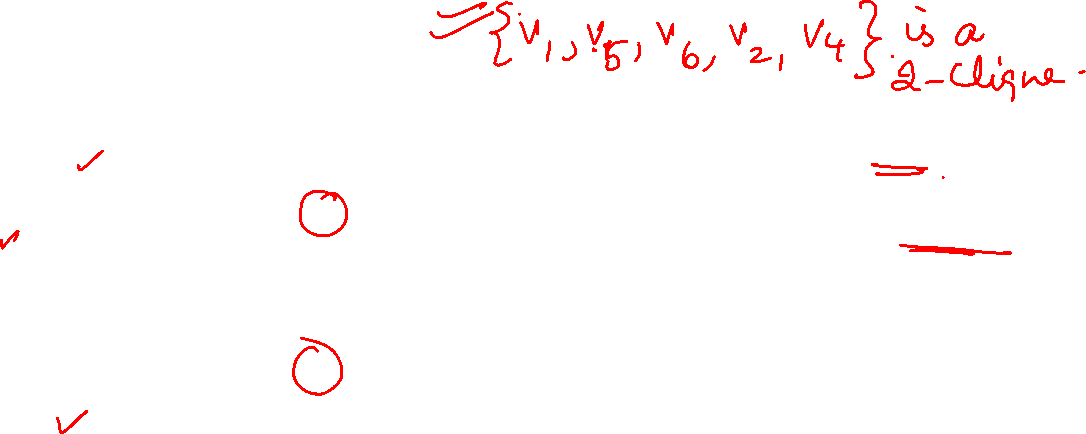 {V1, V5, V6, V2, V4} is a
2-clique.